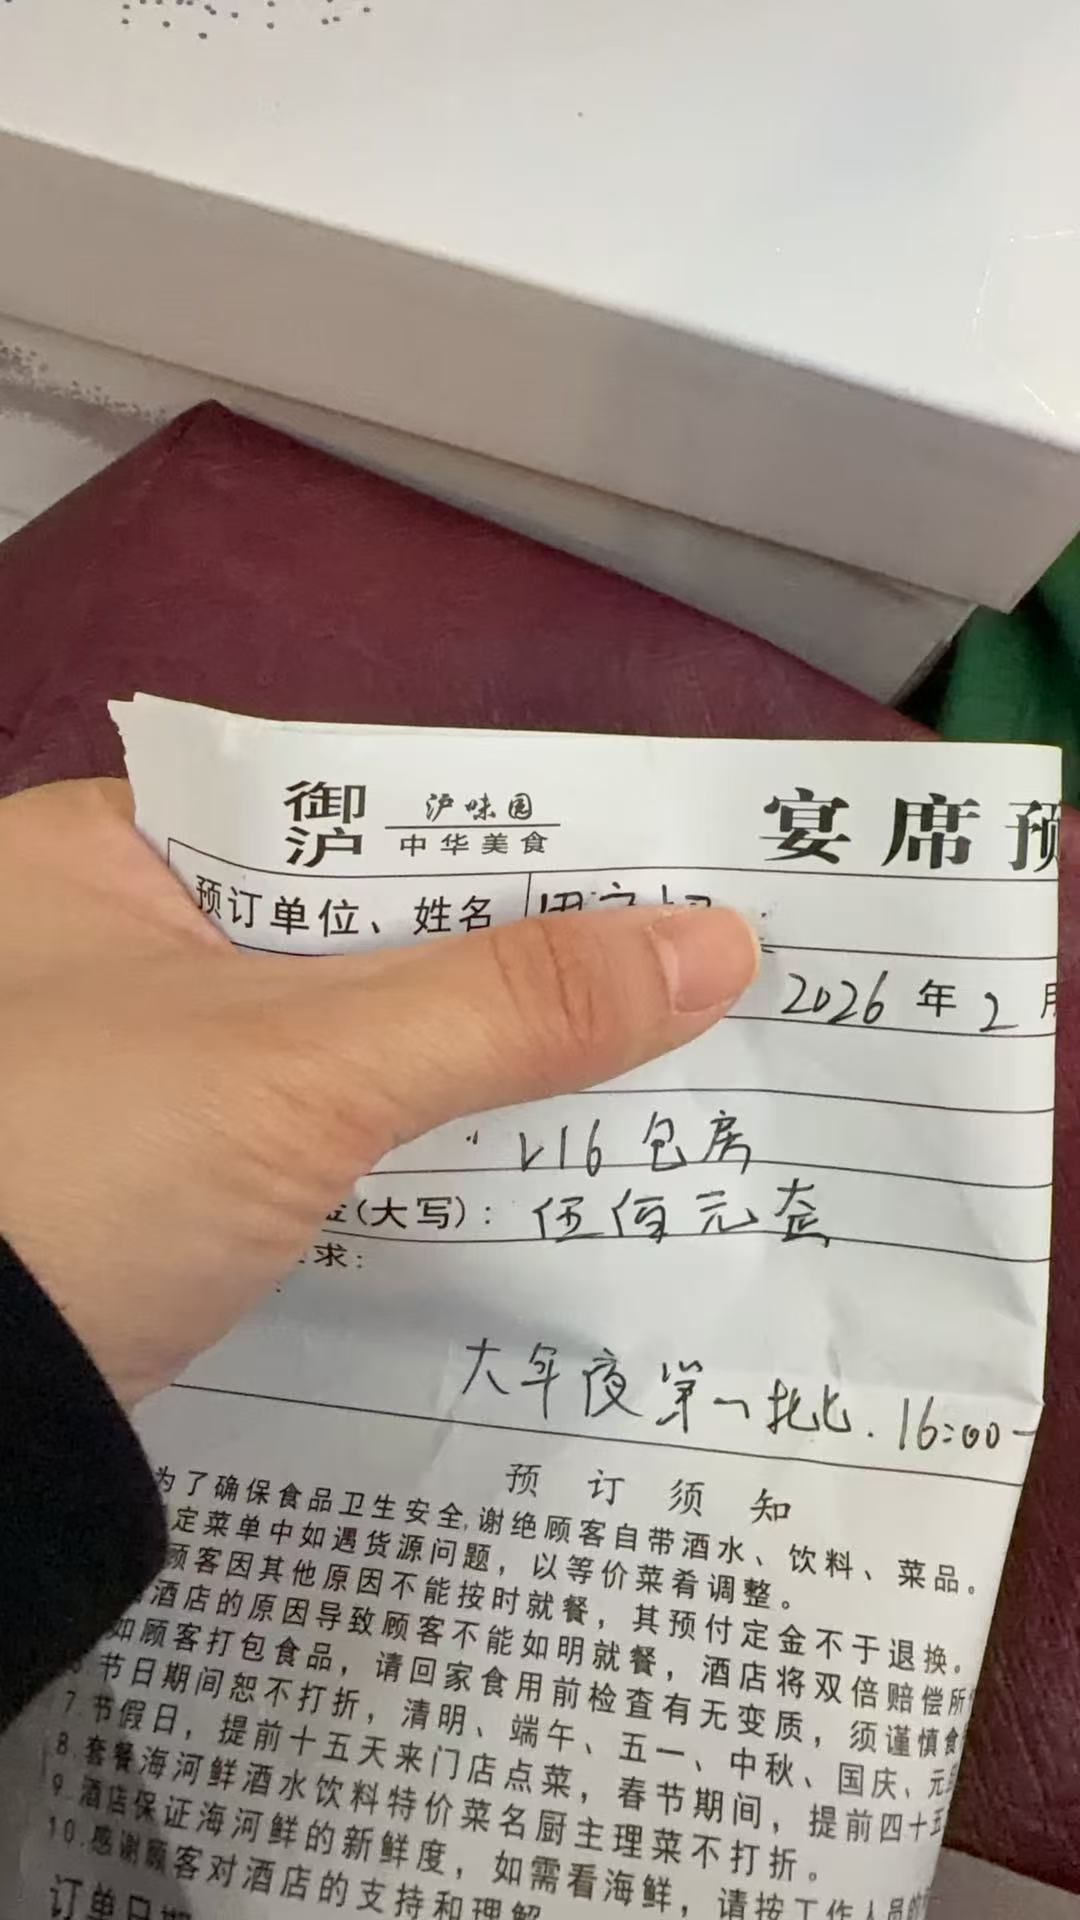 御沪 沪味园
中华美食
宴席预
预订单位、姓名
2026年2月
V16包房
金(大写)：伍佰元整
求：
大年夜第一批.16:00-
预订须知
为了确保食品卫生安全,谢绝顾客自带酒水、饮料、菜品。
定菜单中如遇货源问题，以等价菜肴调整。
顾客因其他原因不能按时就餐，其预付定金不于退换。
酒店的原因导致顾客不能如明就餐，酒店将双倍赔偿所
如顾客打包食品，请回家食用前检查有无变质，须谨慎食
节日期间恕不打折，清明、端午、五一、中秋、国庆、元
7.节假日，提前十五天来门店点菜，春节期间，提前四十五
8.套餐海河鲜酒水饮料特价菜名厨主理菜不打折。
9.酒店保证海河鲜的新鲜度，如需看海鲜，请按工作人员的
10.感谢顾客对酒店的支持和理解
订单日期